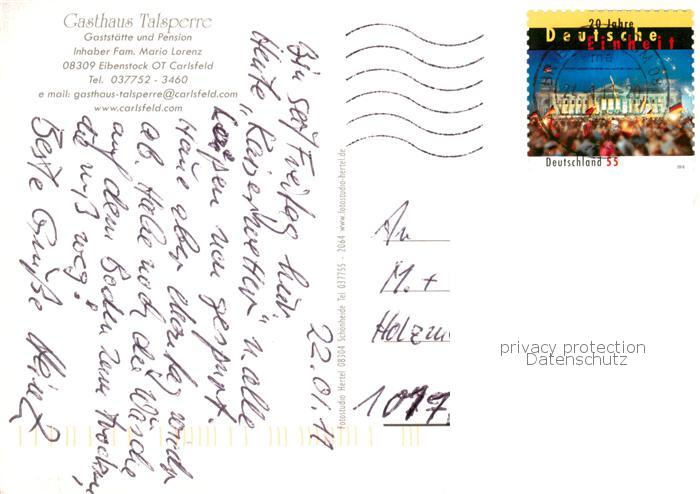 Gasthaus Talsperre
Gaststätte und Pension
Inhaber Fam. Mario Lorenz
08309 Eibenstock OT Carlsfeld
Tel. 037752 - 3460
e mail: gasthaus-talsperre@carlsfeld.com
www.carlsfeld.com
22.01.11
Bin seit Freitag hier.
Heute "Kaiserwetter" u. alle
Loipen neu gespurt.
Haue aber morgen wieder
ab. Habe noch die Wäsche
auf dem Boden zum trocknen,
die muß weg!
Beste Grüße Heinz
Fotostudio Hertel 08304 Schönheide Tel 037755 - 2064 www.fotostudio-hertel.de
20 Jahre
Deutsche
Einheit
Deutschland 55
2010
An
M. +
Holzm
1017
privacy protection
Datenschutz